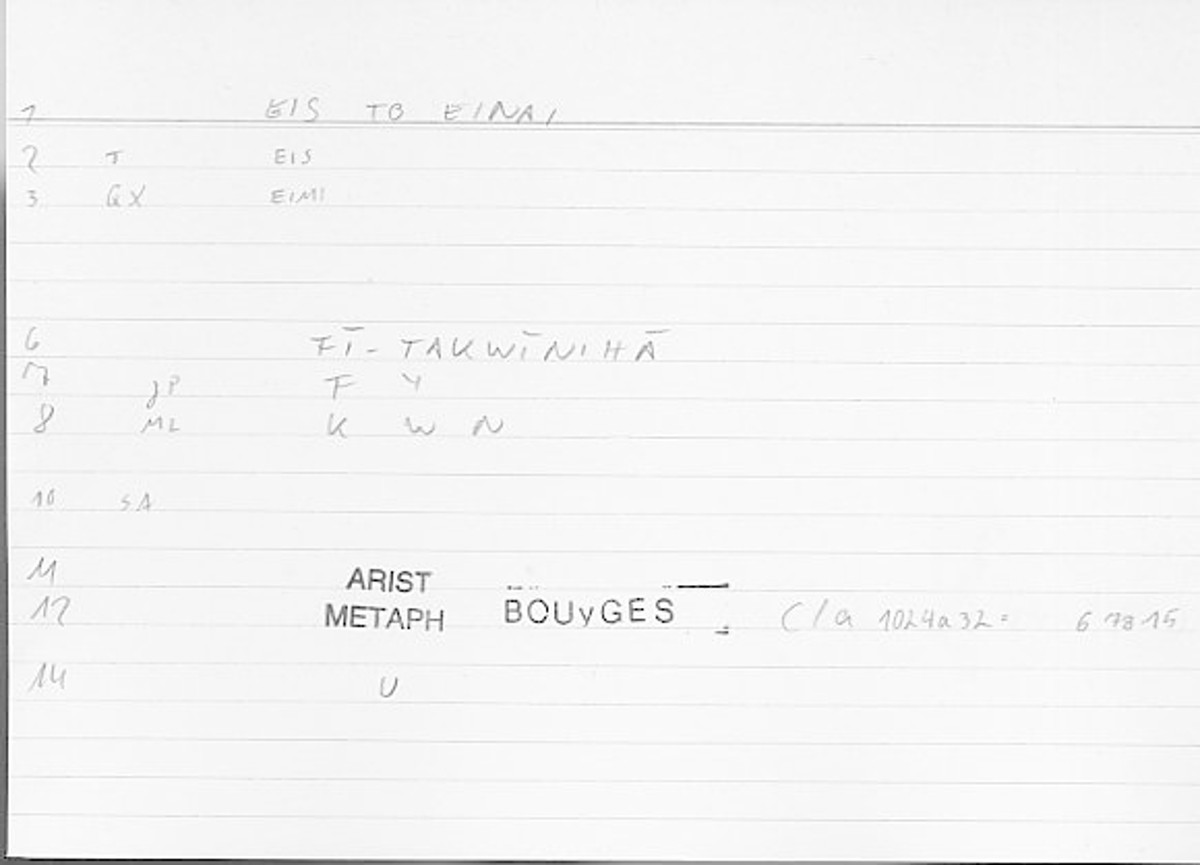 1 EIS TO EINAI
2 T EIS
3 GX EIMI
6 FĪ- TAKWĪNIHĀ
7 JP F Y
8 ML K W N
10 SA
11 ARIST
12 METAPH BOUyGES C/a 1024a32=
14 U